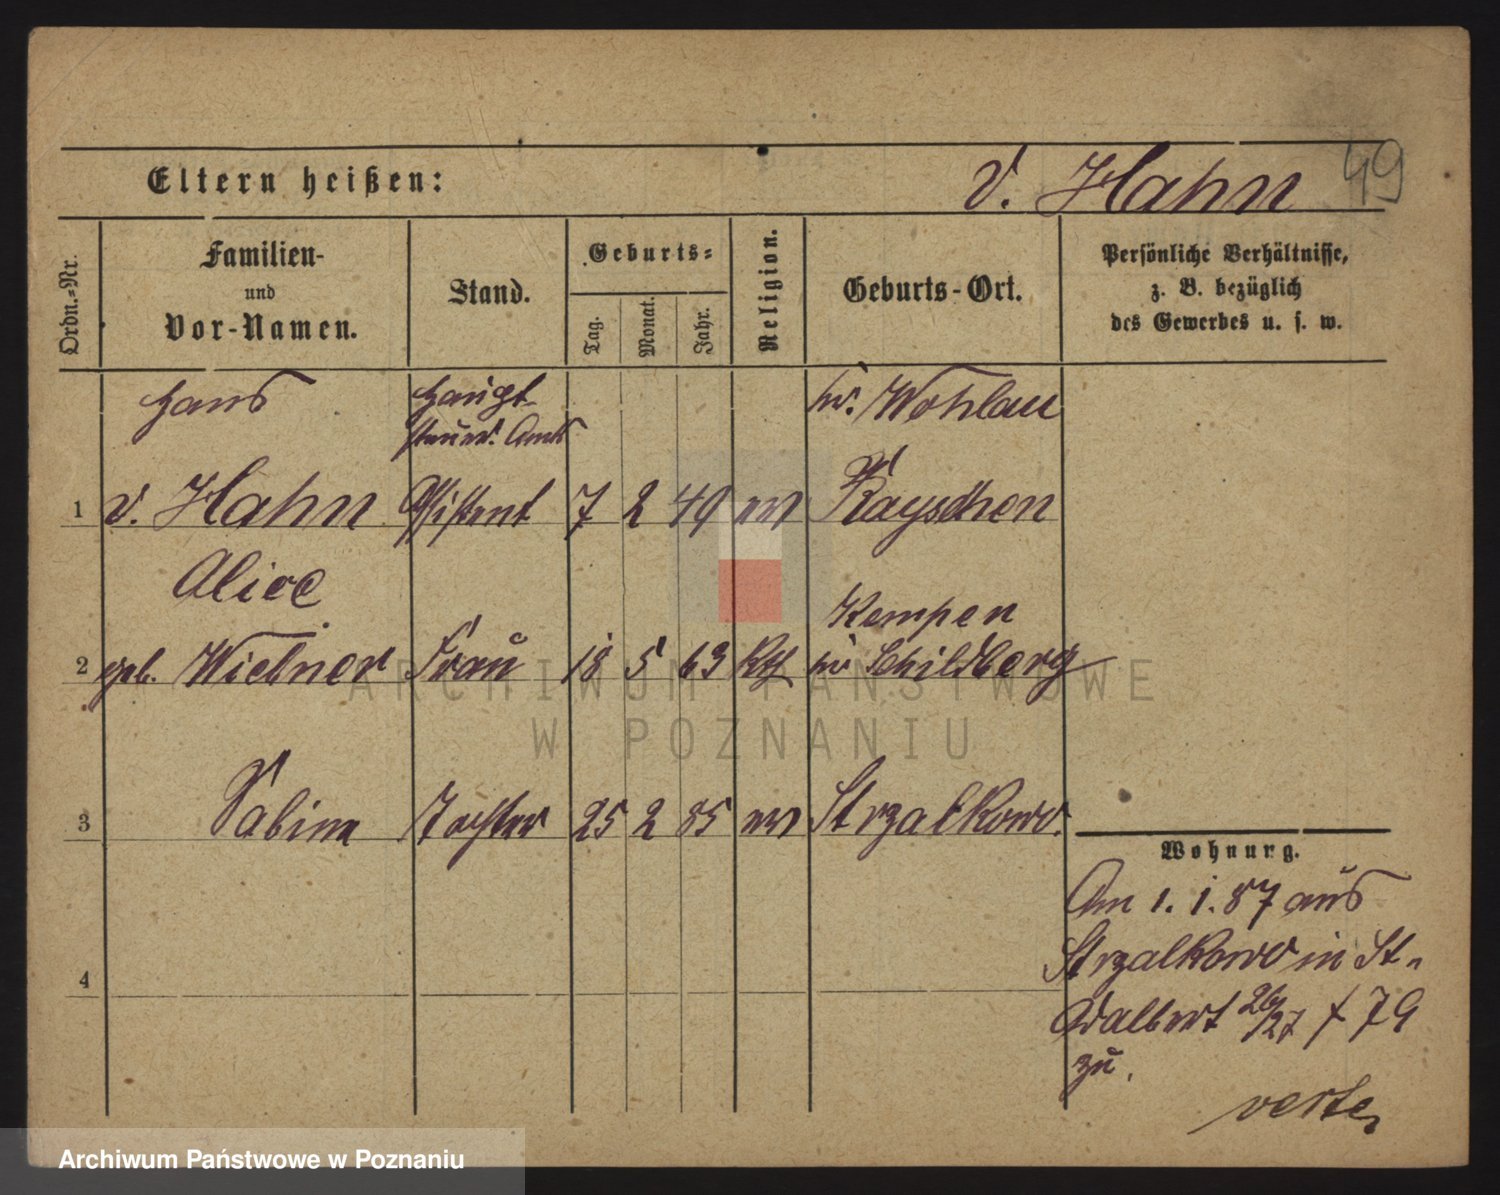 Eltern heißen: v. Hahn 49
Ordn.-Nr.
Familien-
und
Vor-Namen.
Stand.
Geburts-
Tag.
Monat.
Jahr.
Religion.
Geburts-Ort.
Persönliche Verhältnisse,
z. B. bezüglich
des Gewerbes u. s. w.
Hans Haupt- kr. Wohlau
steuer. Amts
1 v. Hahn Assistent 7 2 49 ev Rayschen
Alice Kempen
2 geb. Wiebner Frau 18 5 63 kth kr Schildberg
3 Sabina Tochter 25 2 85 ev Strzalkowo.
4
Wohnung.
Am 1. 1. 87 aus
Strzalkowo in St.
Adalbert 26/27 f 79
zu.
verte
ARCHIWUM PAŃSTWOWE
W POZNANIU
Archiwum Państwowe w Poznaniu